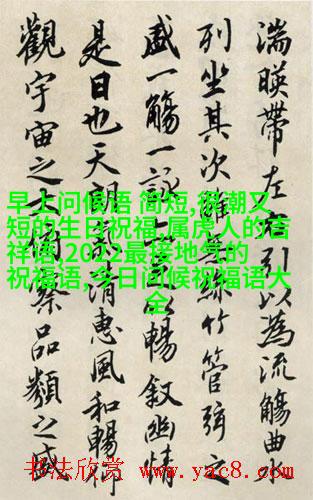 湍暎帶左右引以為流觴曲
列坐其次雖無絲竹管弦之
盛一觴一詠亦足以暢叙幽情
是日也天朗氣清惠風和暢仰
觀宇宙之大俯察品類之盛
早上问候语 简短,很潮又
短的生日祝福,属虎人的吉
祥语,2022最接地气的
祝福语,今日问候祝福语大
全
书法欣赏 www.yac8.com